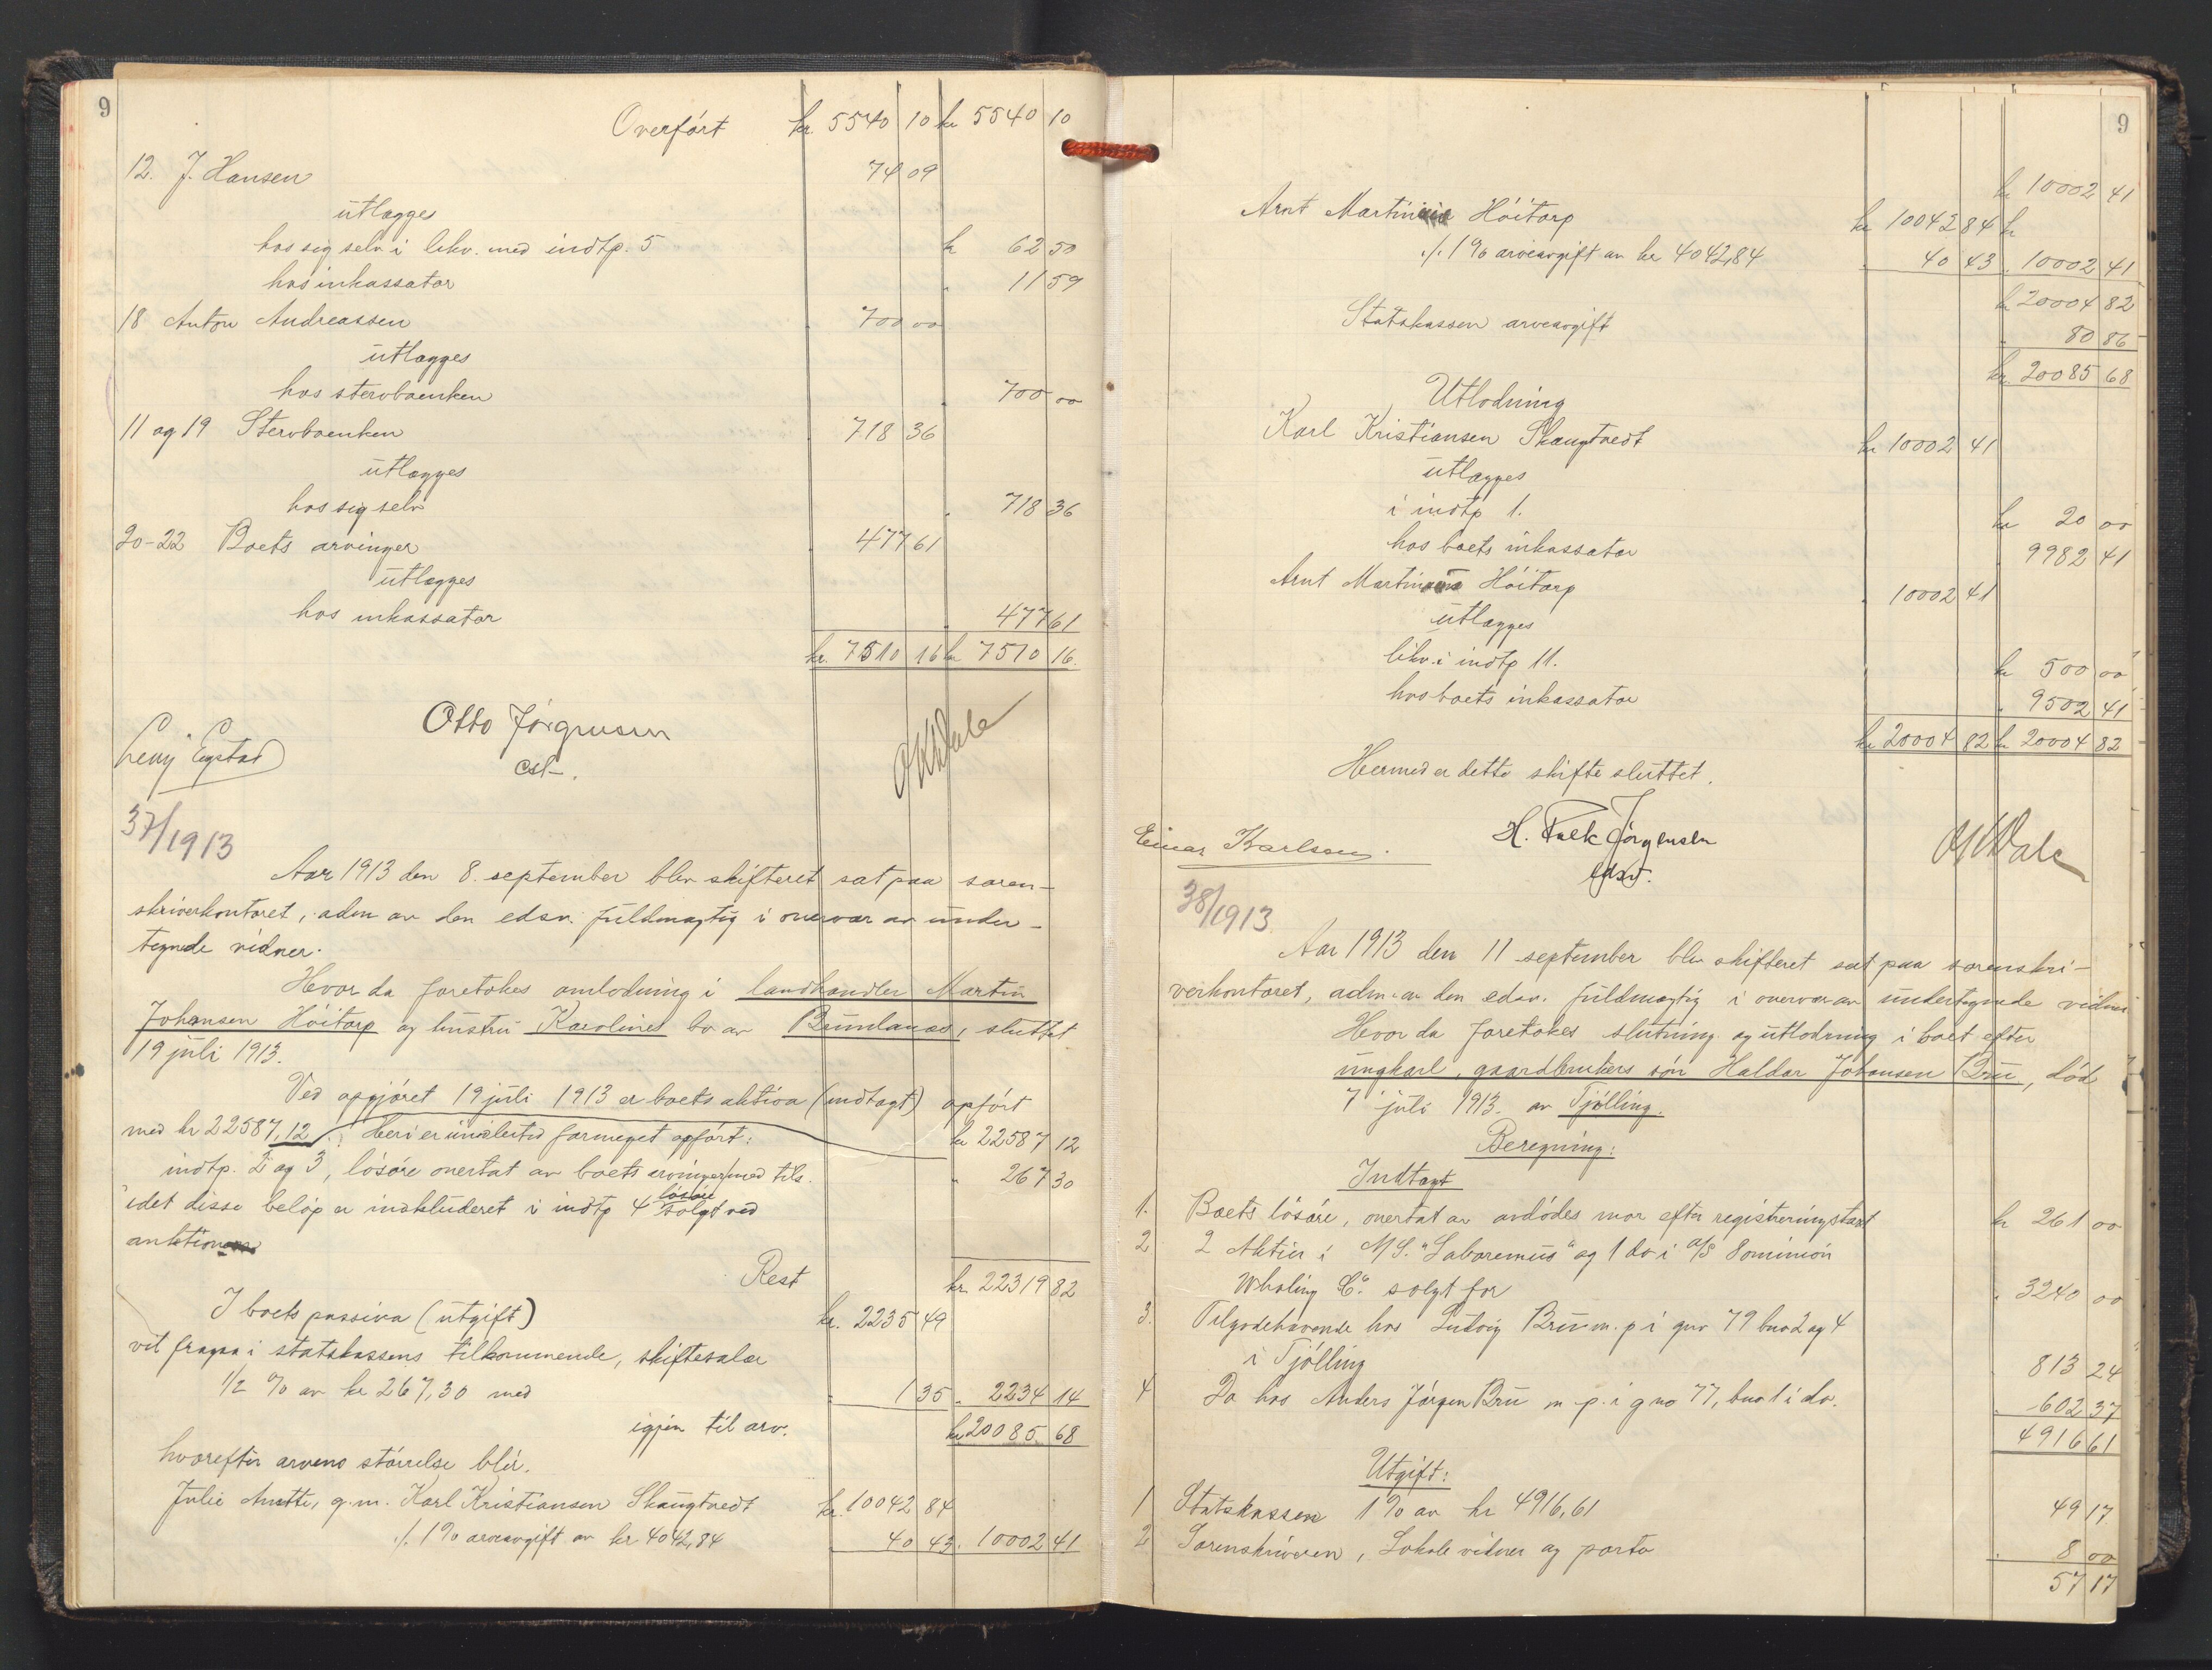 9
Overført kr 5540 10 kr 5540 10
12. J. Hansen 74 09
utlægges
hos sig selv i likv. med indtp. 5 kr 62 50
hos inkassator " 11 59
18 Anton Andreassen " 700 00
utlægges
hos stervboenken " 700 00
11 og 19 Stervboenken " 718 36
utlægges
hos sig selv " 718 36
20-22 Boets arvinger " 477 61
utlægges
hos inkassator " 477 61
kr. 7510 16 kr 7510 16.
Otto Jørgensen
cst.
O K Wale
37/1913
Aar 1913 den 8. september blev skifteret sat paa soren-
skriverkontoret, adm av den edsv. fuldmægtig i overvær av under-
tegnede vidner.
Hvor da foretokes omlodning i landhandler Martin
Johansen Høitorp og hustru Karolines bo av Brunlanes, sluttet
19 juli 1913.
Ved opgjøret 19 juli 1913 er boets aktiva (indtægt) opført
med kr 22587,12. Heri er imidlertid formeget opført: kr 22587 12
indtp. 2 og 3, løsøre overtat av boets arvinger med tils. " 267 30
idet disse beløp er inkluderet i indtp 4 løsøre solgt ved
auktion
Rest kr. 22319 82
I boets passiva (utgift) kr. 2235 49
vil fragaa i statskassens tilkommende, skiftesalær
1/2 % av kr 267,30 med " 1 35 " 2234 14
igjen til arv. kr 20085 68
hvorefter arvens størrelse blir.
Julie Anette, g.m. Karl Kristiansen Skaugtvedt kr. 10042 84
./. 1% arveavgift av kr 4042,84 " 40 43 " 10002 41
9
kr 10002 41
Arnt Martinius Høitorp kr 10042 84 kr
./. 1% arveavgift av kr 4042,84 " 40 43 " 10002 41
kr 20004 82
Statskassen arveavgift " 80 86
kr. 20085 68
Utlodning
Karl Kristiansen Skaugtvedt kr 10002 41
utlægges
i indtp 1. kr 20 00
hos boets inkassator 9982 41
Arnt Martinius Høitorp " 10002 41
utlægges
likv. i indtp 11. kr 500 00
hos boets inkassator " 9502 41
kr 20004 82 kr 20004 82
Hermed er dette skifte sluttet.
Einar Karlsen. H. Falk Jørgensen O K Wale
edsv.
38/1913.
Aar 1913 den 11 september blev skifteret sat paa sorenskri-
verkontoret, adm. av den edsv. fuldmægtig i overvær av undertegnede vidner
Hvor da foretokes slutning og utlodning i boet efter
ungkarl, gaardbrukers søn Haldor Johansen Bru, død
7 juli 1913. av Tjølling.
Beregning:
Indtægt
1. Boets løsøre, overtat av avdødes mor efter registreringstakst kr 261 00
2 2 Aktier i M/S. "Laboremus" og 1 do i A/S Dominion
Whaling Co. solgt for " 3240 00
3. Tilgodehavende hos Ludvig Bru m. p i gno 79 bno 2 og 4
i Tjølling " 813 24
4 Do hos Anders Jørgen Bru m p. i gno 77, bno 1 i do. " 602 37
4916 61
Utgift:
1 Statskassen 1% av kr 4916,61 49 17
2 Sorenskriveren, Lokale vidner og porto " 8 00
57 17